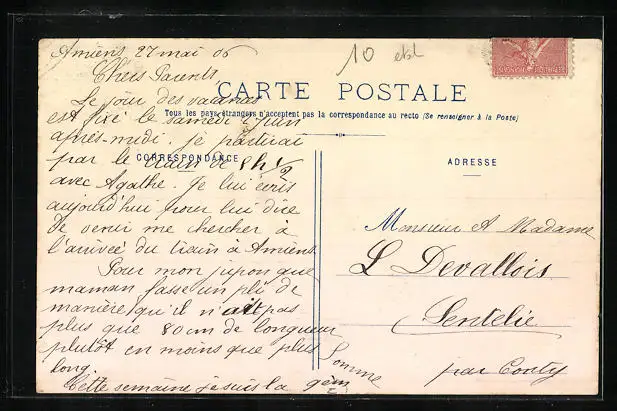 Amiens 27 mai 06
10
Chers Parents
CARTE POSTALE
Tous les pays étrangers n'acceptent pas la correspondance au recto (Se renseigner à la Poste)
CORRESPONDANCE
Le jour des vacances
est fixé le samedi 2 juin
après-midi. je partirai
par le train de 5h 1/2
avec Agathe. Je lui écris
aujourd'hui pour lui dire
de venir me chercher à
l'arrivée du train à Amiens
Pour mon jupon que
maman fasse un pli de
manière qu'il n'ait pas
plus que 80cm de longueur
plutôt en moins que plus
long.
Cette semaine je suis la 9èm
ADRESSE
Monsieur & Madame
L Devallois
Sentelie
par Conty
Somme